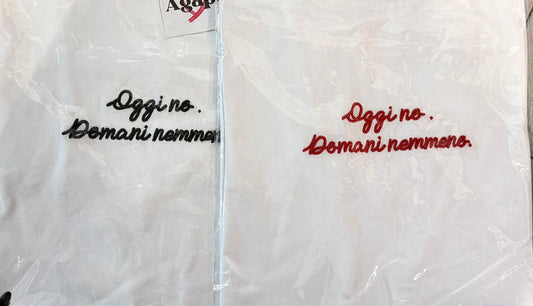 Agap
Oggi no.
Domani nemmen
Oggi no.
Domani nemmeno.